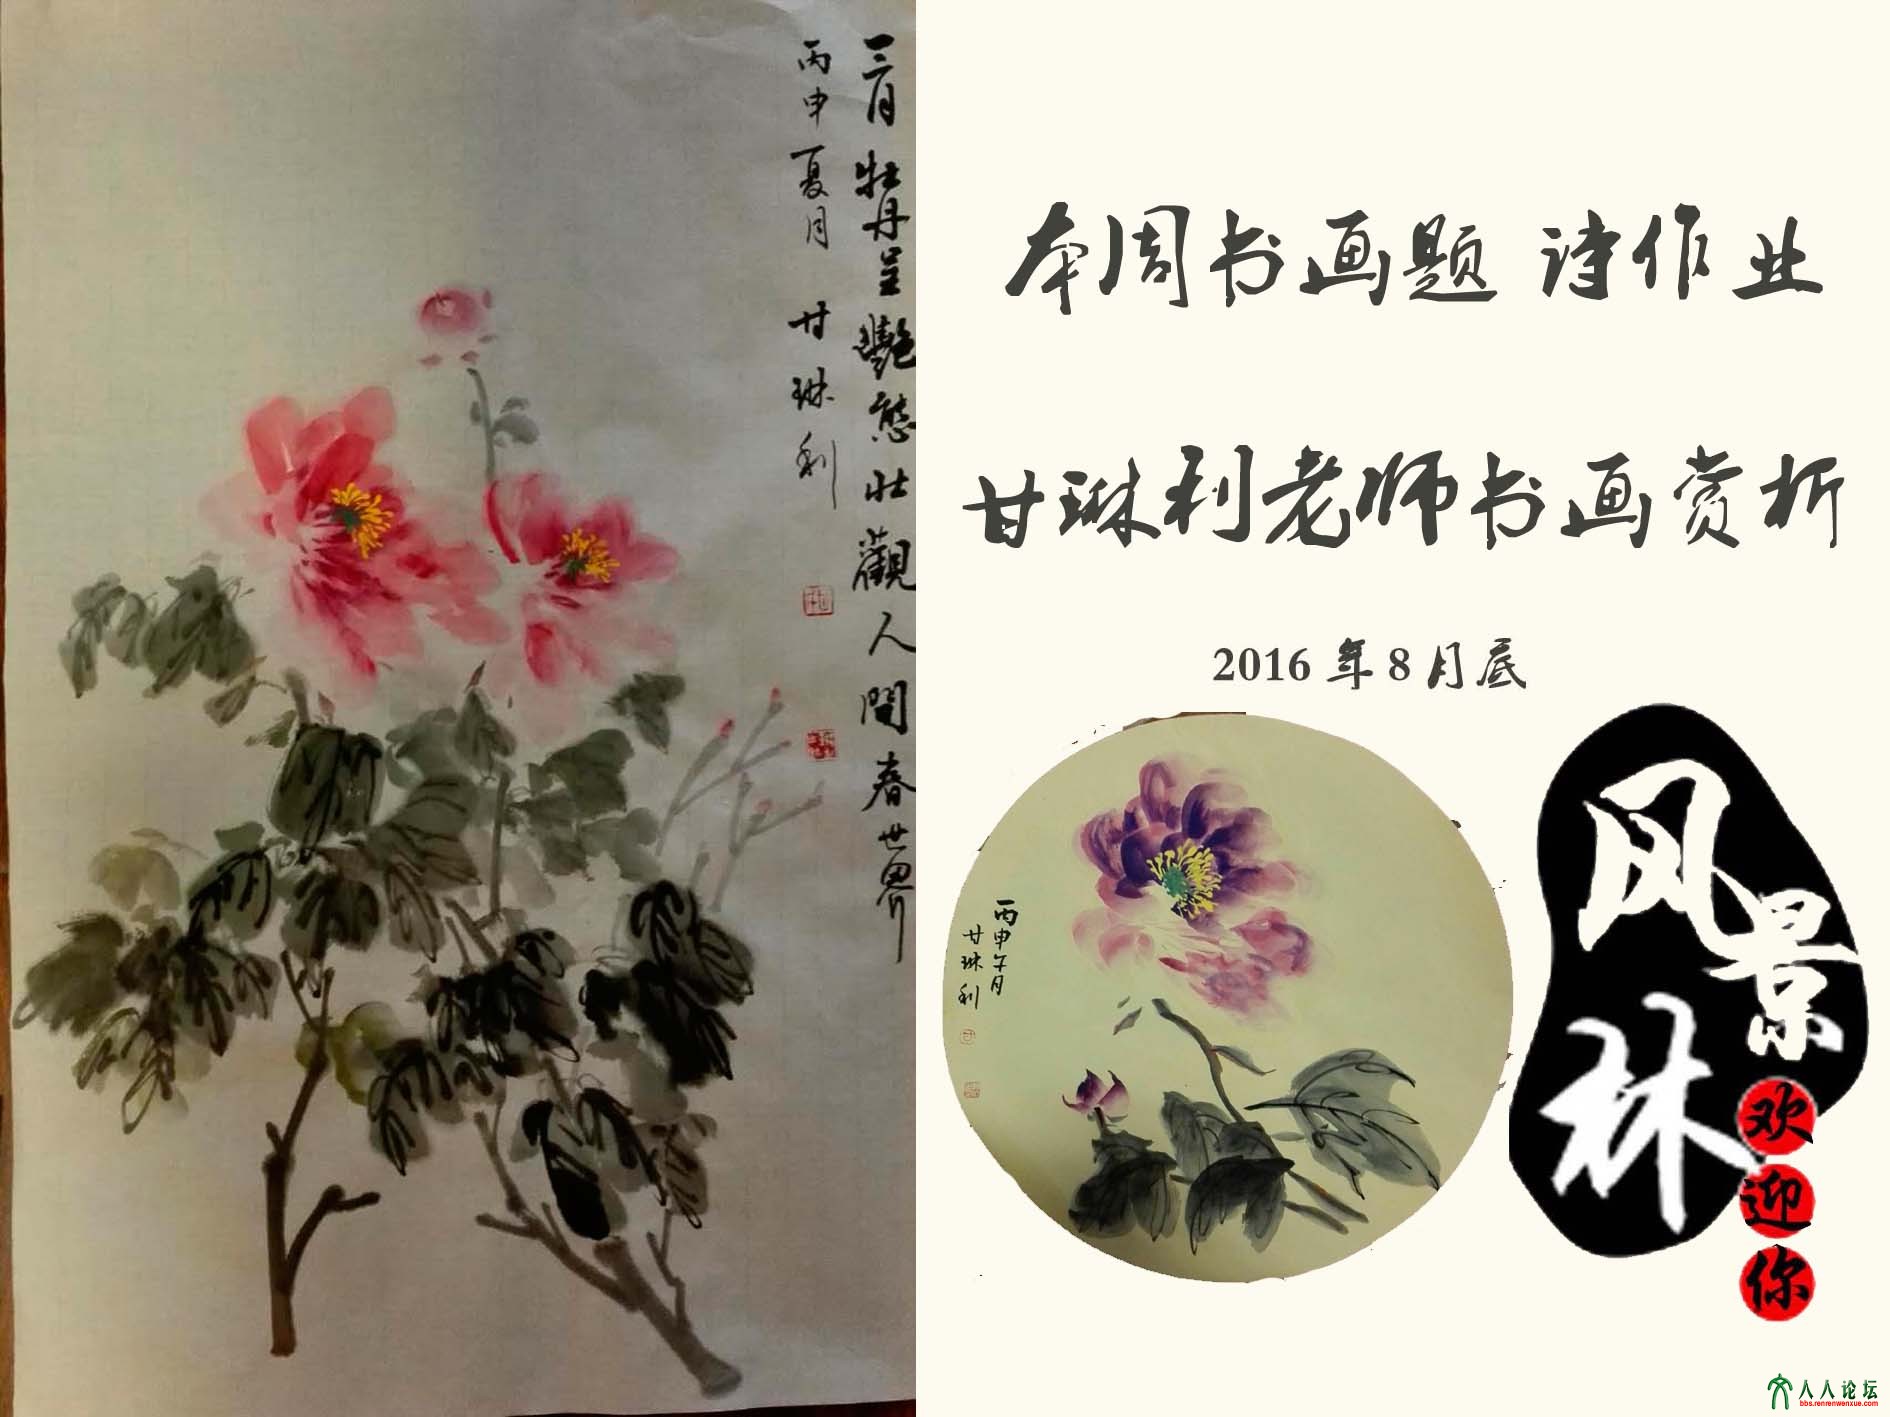 三月牡丹呈艷態壯觀人間春世界
丙申夏月 甘琳利
本周书画题 诗作业
甘琳利老师书画赏析
2016 年 8 月底
丙申午月
甘琳利
风景林
欢迎你
人人论坛
bbs.renrenwenxue.com